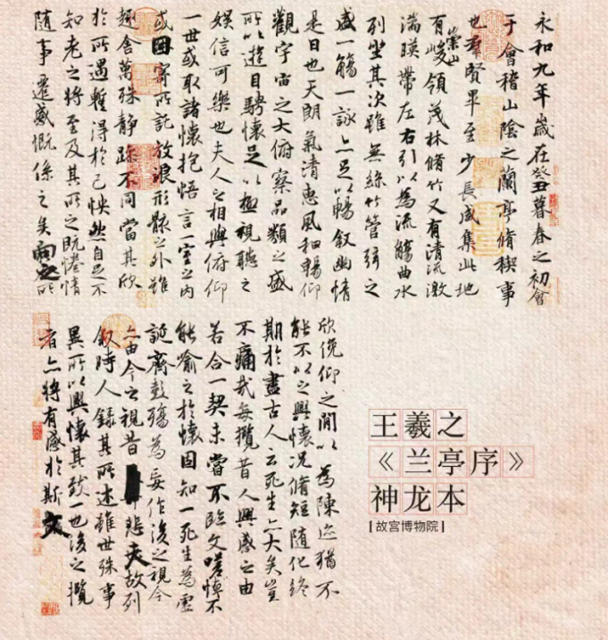 永和九年歲在癸丑暮春之初會
于會稽山陰之蘭亭脩稧事
也羣賢畢至少長咸集此地
有崇山峻領茂林脩竹又有清流激
湍暎帶左右引以為流觴曲水
列坐其次雖無絲竹管弦之
盛一觴一詠亦足以暢敘幽情
是日也天朗氣清惠風和暢仰
觀宇宙之大俯察品類之盛
所以遊目騁懷足以極視聽之
娛信可樂也夫人之相與俯仰
一世或取諸懷抱悟言一室之內
或因寄所託放浪形骸之外雖
趣舍萬殊靜躁不同當其欣
於所遇蹔得於己怏然自足不
知老之將至及其所之既惓情
隨事遷感慨係之矣向之所
欣俛仰之閒以為陳迹猶不
能不以之興懷況脩短隨化終
期於盡古人云死生亦大矣豈
不痛哉每攬昔人興感之由
若合一契未嘗不臨文嗟悼不
能喻之於懷固知一死生為虛
誕齊彭殤為妄作後之視今
亦由今之視昔悲夫故列
敘時人錄其所述雖世殊事
異所以興懷其致一也後之攬
者亦將有感於斯文
王羲之
《兰亭序》
神龙本
[故宫博物院]